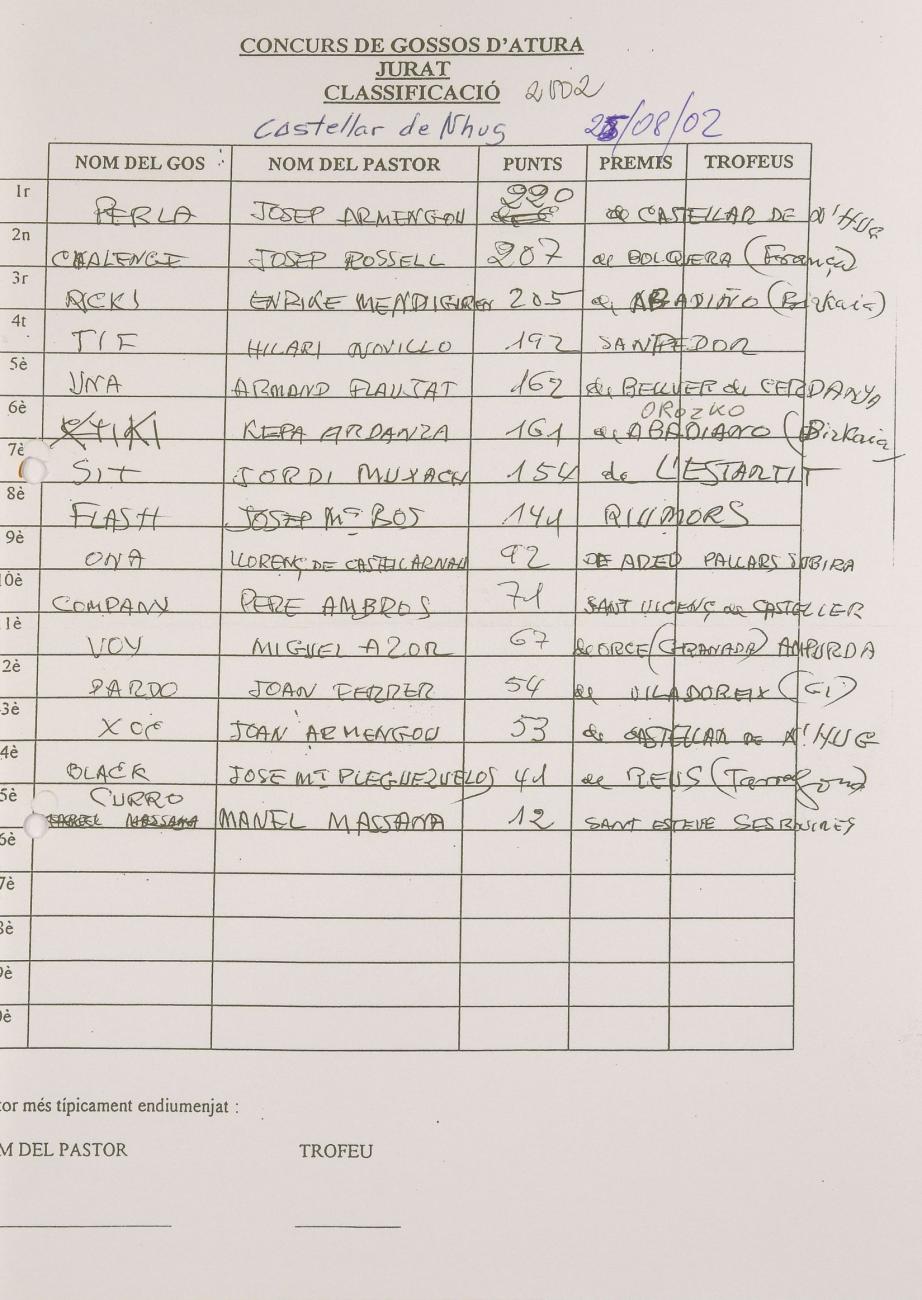 CONCURS DE GOSSOS D'ATURA
JURAT
CLASSIFICACIÓ 2002
Castellar de Nhug 25/08/02
NOM DEL GOS NOM DEL PASTOR PUNTS PREMIS TROFEUS
1r PERLA JOSEP ARMENGOU 220 de CASTELLAR DE N'HUG
2n CHALENGE JOSEP ROSSELL 207 de BOLQUERA (França)
3r ACKI ENRIKE MENDIGUREN 205 de ABADIÑO (Bizkaia)
4t TIF HILARI NOVILLO 192 SANTPEDOR
5è UNA ARMAND FLAUTAT 162 de BELLVER de CERDANYA
OROZKO
6è XYIKI KEPA ARDANZA 161 de ABADIANO (Bizkaia
7è SIT JORDI MUXACH 154 de L'ESTARTIT
8è FLASH JOSEP Mª BOS 141 RIUMORS
9è ONA LLORENÇ DE CASTELLARNAU 92 DE PALLARS SOBIRA
10è COMPANY PERE AMBROS 71 SANT VICENÇ de CASTELLER
1è VOY MIGUEL AZOR 67 de ORCE (GRANADA) AMPURDA
2è PARDO JOAN FERRER 54 de VILADOREIX (Gi)
3è XOC JOAN ARMENGOU 53 de CASTELLAR DE N'HUG
4è BLACK JOSE Mª PLEGUEZUELOS 41 de REUS (Tarragona)
5è CURRO
MASSANA MANEL MASSANA 12 SANT ESTEVE SESROVIRES
6è
7è
8è
9è
0è
tor més típicament endiumenjat :
M DEL PASTOR TROFEU